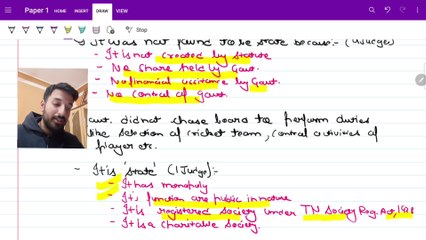 Paper 1
HOME
INSERT
DRAW
VIEW
It was not found to be state because:- (4Judge)
- It is not created by statute
- No share held by Govt.
- No financial assitance by Govt.
- No control of Govt.
did not chose board to perform duties
like selection of cricket team, control activities of
player etc.
- It is 'state' (1 Judge):-
- It has monopoly
- Its function are public in nature
- It is registered society under TN Society Reg. Act,
- It is a charitable society.